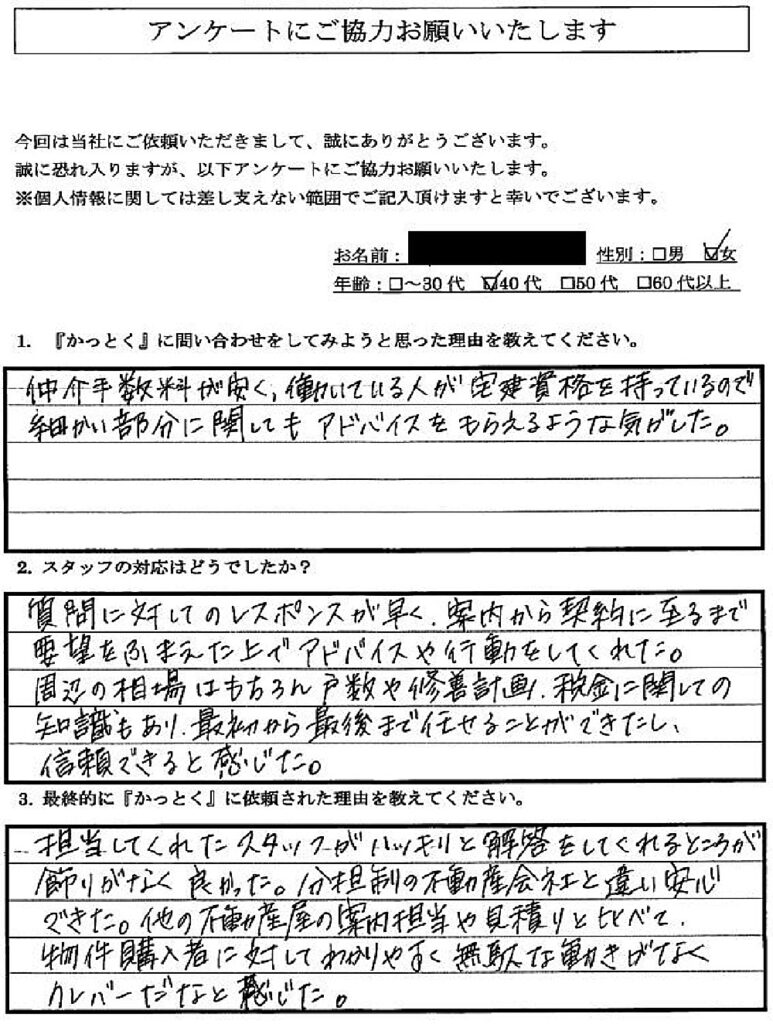 アンケートにご協力お願いいたします
今回は当社にご依頼いただきまして、誠にありがとうございます。
誠に恐れ入りますが、以下アンケートにご協力お願いいたします。
※個人情報に関しては差し支えない範囲でご記入頂けますと幸いでございます。
お名前： 性別：□男 ☑女
年齢：□～30代 ☑40代 □50代 □60代以上
1. 『かっとく』に問い合わせをしてみようと思った理由を教えてください。
仲介手数料が安く、働いている人が宅建資格を持っているので
細かい部分に関してもアドバイスをもらえるような気がした。
2. スタッフの対応はどうでしたか？
質問に対してのレスポンスが早く、案内から契約に至るまで
要望をふまえた上でアドバイスや行動をしてくれた。
周辺の相場はもちろん戸数や修善計画、税金に関しての
知識もあり、最初から最後まで任せることができたし、
信頼できると感じた。
3. 最終的に『かっとく』に依頼された理由を教えてください。
担当してくれたスタッフがハッキリと解答をしてくれるところが
飾りがなく良かった。分担制の不動産会社と違い安心
できた。他の不動産屋の案内担当や見積りと比べて、
物件購入者に対してわかりやすく無駄な動きがなく
クレバーだなと感じた。